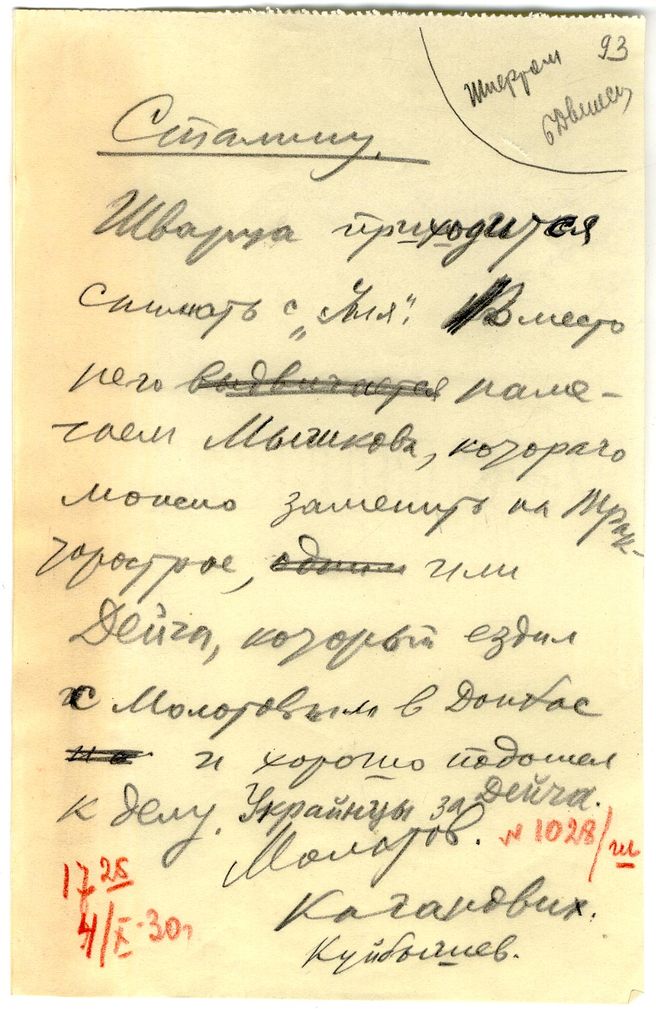 93
Шифром
Сталину.
Шварца приходится
снимать с „Угля". Вместо
него выдвигается наме-
чаем Мышкова, которого
можно заменить на Трак-
торострое, или
Дейча, который ездил
с Молотовым в Донбас
и хорошо подошел
к делу. Украинцы за Дейча.
Молотов. № 1028/ш
Каганович.
Куйбышев.
17 25
4/X-30г